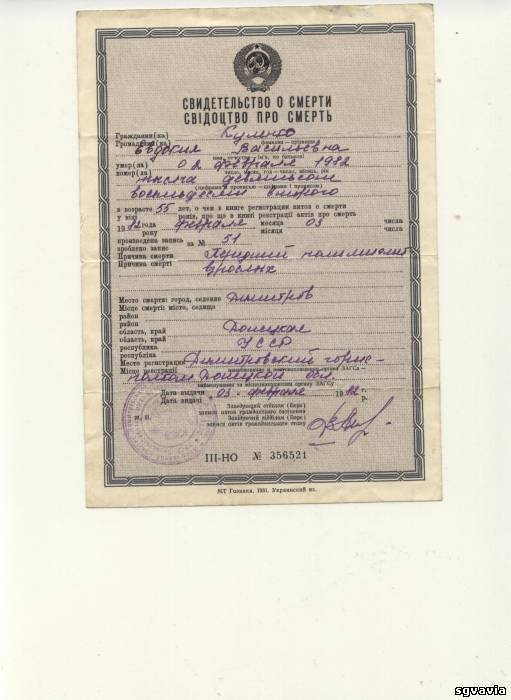 СВИДЕТЕЛЬСТВО О СМЕРТИ
СВІДОЦТВО ПРО СМЕРТЬ
Гражданин(ка) Куленко
Громадянин(ка) фамилия - прізвище
Евдокия Васильевна
умер(ла) 02 февраля 1982
помер(ла) число, месяц, год - число, місяць, рік
тысяча девятьсот
восемьдесят второго
(цифрами и прописью - цифрами і прописом)
в возрасте 55 лет, о чем в книге регистрации актов о смерти
у віці років, про що в книзі реєстрації актів про смерть
1982 года февраля месяца 03 числа
року місяця числа
произведена запись за № 51
зроблено запис
Причина смерти Хронический
Причина смерті
взрослых
Место смерти: город, селение Димитров
Місце смерті: місто, селище
район
район
область, край Донецкая
область, край
республика УССР
республіка
Место регистрации Димитровский горис-
Місце реєстрації
полком Донецкой обл.
наименование и местонахождение органа ЗАГСа
Дата выдачи 03 февраля 1982 г.
Дата видачі р.
М. П.
Заведующий отделом (бюро)
записи актов гражданского состояния
Завідуючий відділом (бюро)
запису актів громадянського стану
III-НО № 356521
МТ Гознака. 1981. Украинский яз.
sgvavia